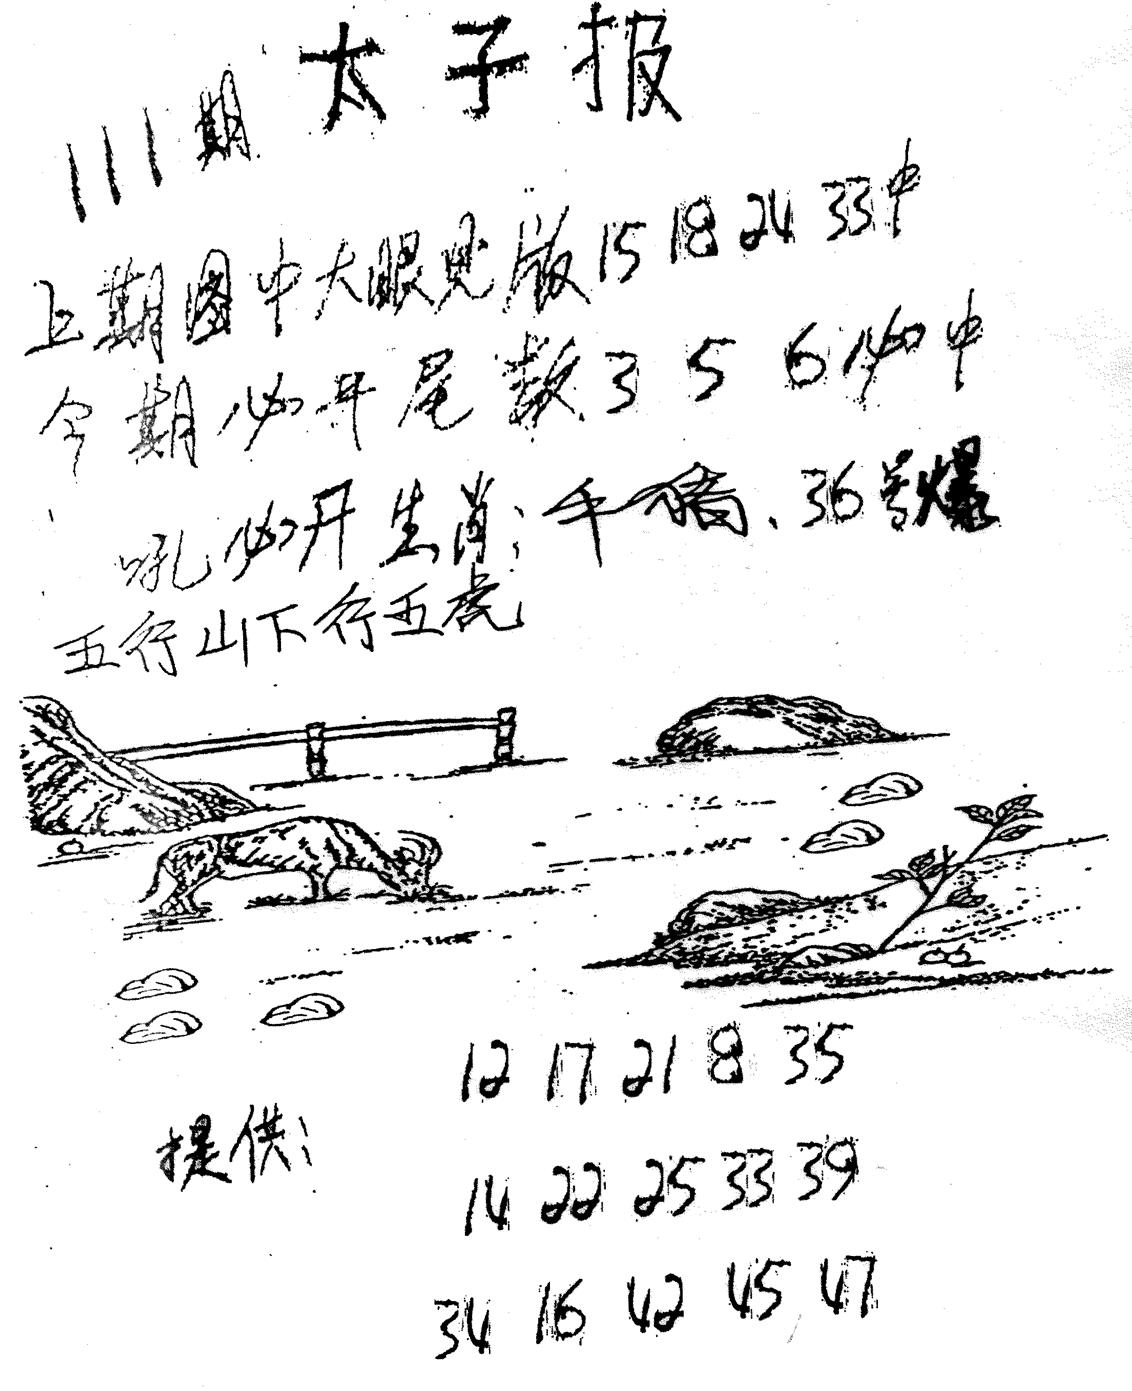 太子报
111期
上期图中大眼见版15 18 24 33中
今期必开尾数3 5 6必中
吼必开生肖:羊猪、36号爆
五行山下行五虎
12 17 21 8 35
提供:
14 22 25 33 39
34 16 42 45 47